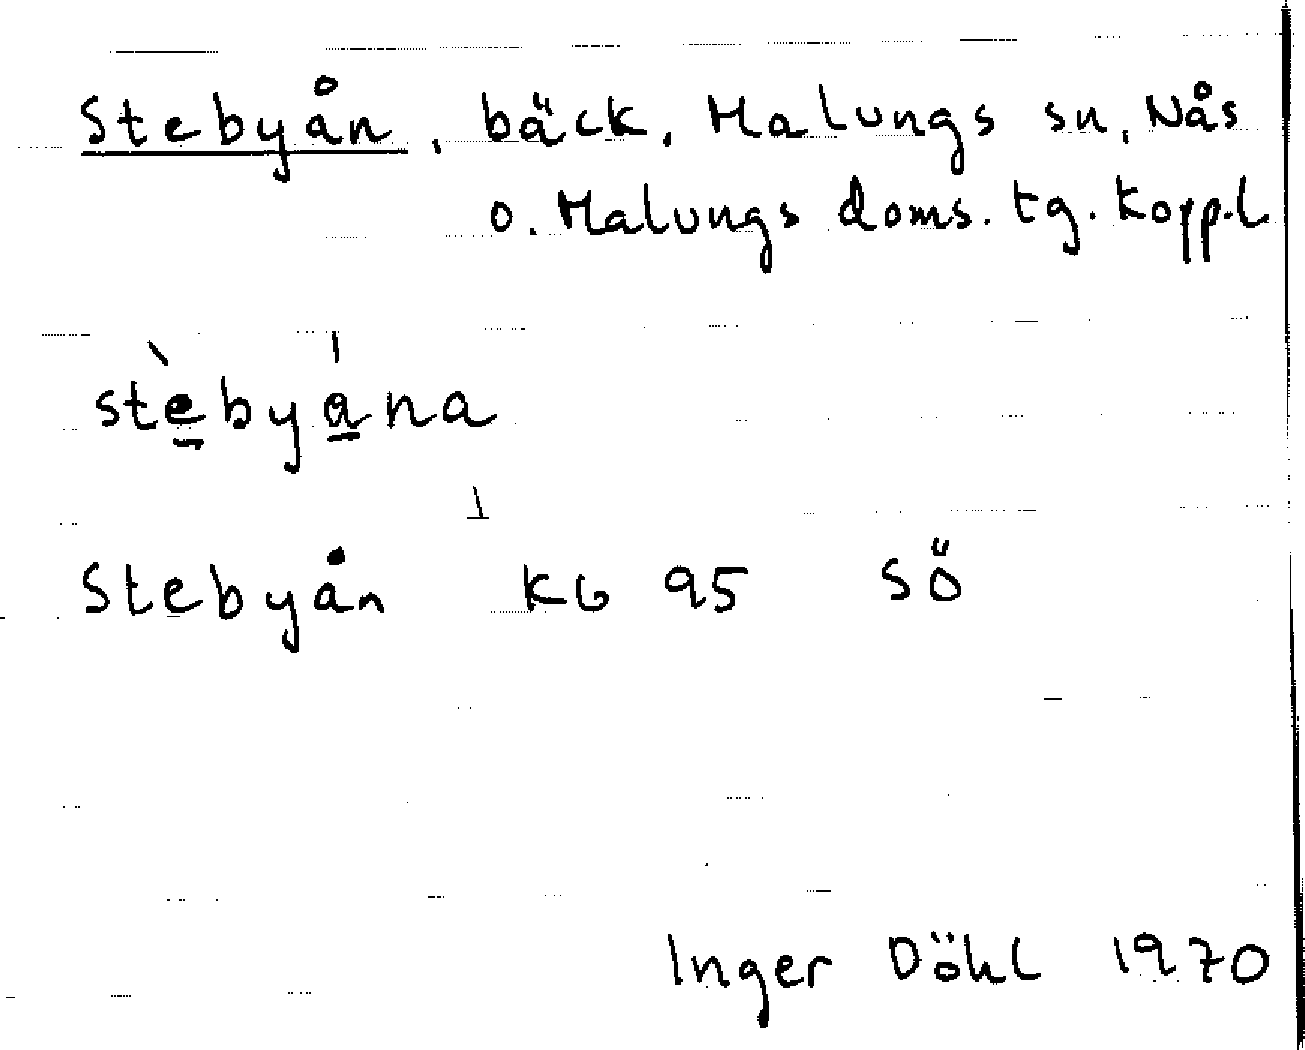 Stebyån, bäck, Malungs sn, Nås
o. Malungs doms. tg. Kopp.l
stèbyána
Stebyån kb 95 SÖ
Inger Döhl 1970